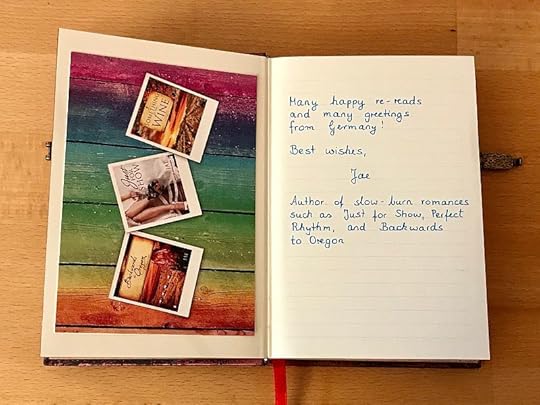 WINE
Just
for
SHOW
JAE
Backwards
to
Oregon
Many happy re-reads
and many greetings
from Germany!
Best wishes,
Jae
Author of slow-burn romances
such as Just for Show, Perfect
Rhythm, and Backwards
to Oregon